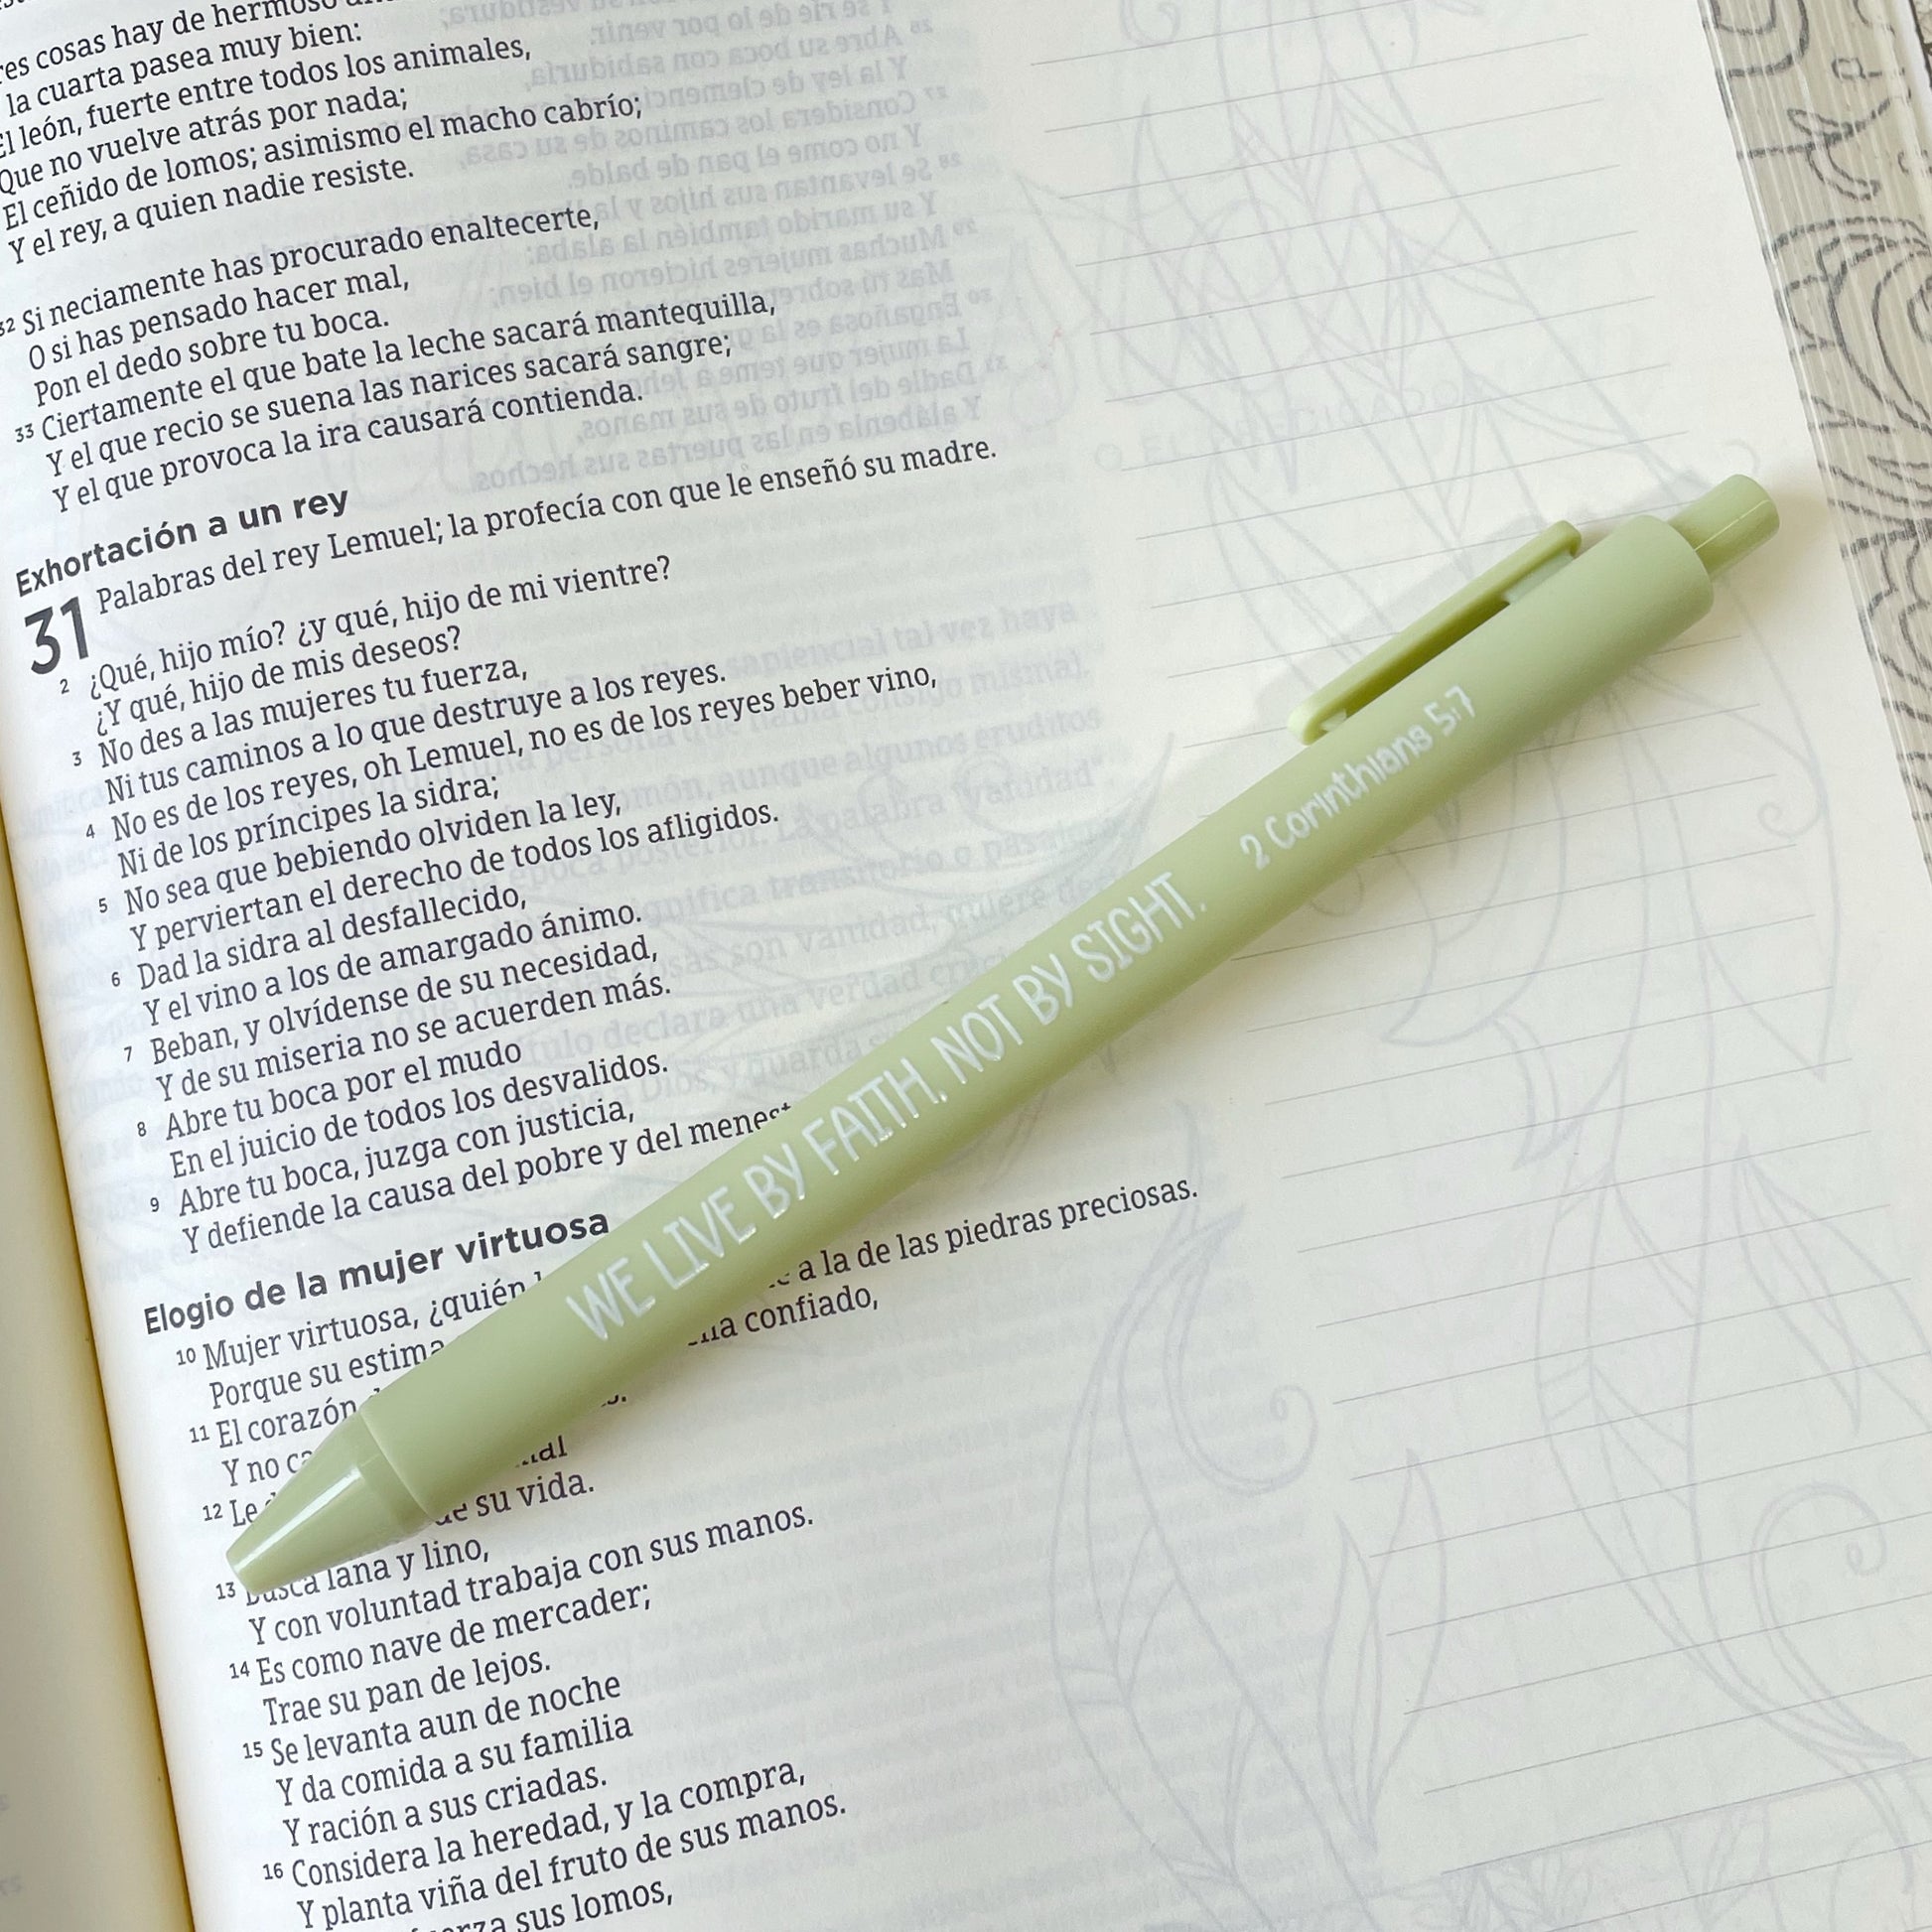 cosas hay de hermoso
la cuarta pasea muy bien:
El león, fuerte entre todos los animales,
Que no vuelve atrás por nada;
El ceñido de lomos; asimismo el macho cabrío;
Y el rey, a quien nadie resiste.
32 Si neciamente has procurado enaltecerte,
O si has pensado hacer mal,
Pon el dedo sobre tu boca.
33 Ciertamente el que bate la leche sacará mantequilla,
Y el que recio se suena las narices sacará sangre;
Y el que provoca la ira causará contienda.
Exhortación a un rey
31 Palabras del rey Lemuel; la profecía con que le enseñó su madre.
2 ¿Qué, hijo mío? ¿y qué, hijo de mi vientre?
¿Y qué, hijo de mis deseos?
3 No des a las mujeres tu fuerza,
Ni tus caminos a lo que destruye a los reyes.
4 No es de los reyes, oh Lemuel, no es de los reyes beber vino,
Ni de los príncipes la sidra;
5 No sea que bebiendo olviden la ley,
Y perviertan el derecho de todos los afligidos.
6 Dad la sidra al desfallecido,
Y el vino a los de amargado ánimo.
7 Beban, y olvídense de su necesidad,
Y de su miseria no se acuerden más.
8 Abre tu boca por el mudo
En el juicio de todos los desvalidos.
9 Abre tu boca, juzga con justicia,
Y defiende la causa del pobre y del
Elogio de la mujer virtuosa
10 Mujer virtuosa, ¿quién
Porque su estima a la de las piedras preciosas.
11 El corazón confiado,
Y no
12 Le
de su vida.
13 Busca lana y lino,
Y con voluntad trabaja con sus manos.
14 Es como nave de mercader;
Trae su pan de lejos.
15 Se levanta aun de noche
Y da comida a su familia
Y ración a sus criadas.
16 Considera la heredad, y la compra,
Y planta viña del fruto de sus manos.
sus lomos,
WE LIVE BY FAITH, NOT BY SIGHT. 2 Corinthians 5:7